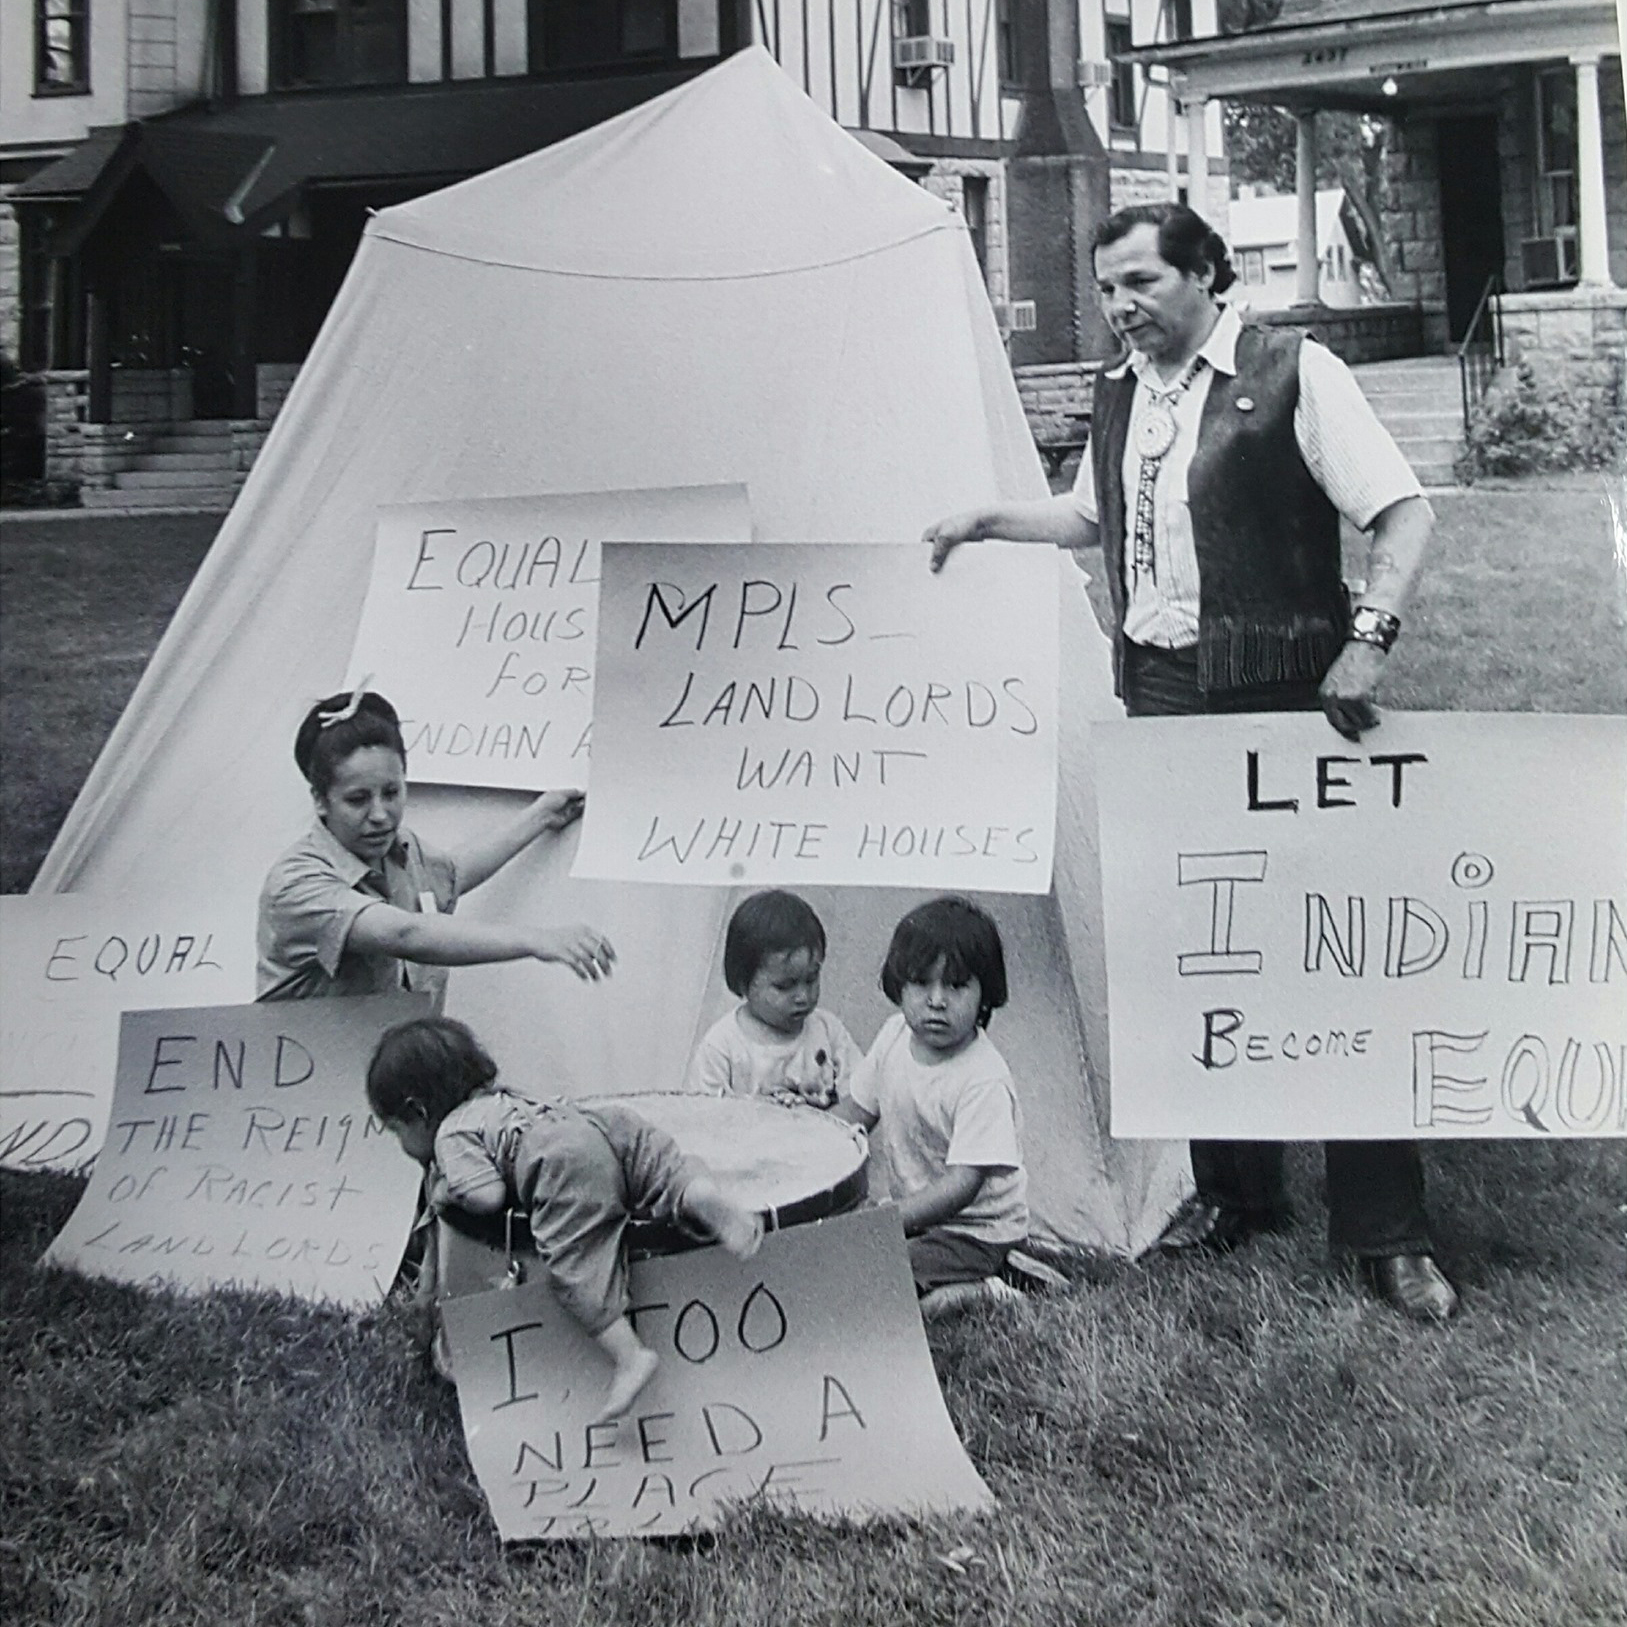 2437
EQUAL
HOUS
FOR
INDIAN A
MPLS-
LANDLORDS
WANT
WHITE HOUSES
LET
INDIAN
BECOME
EQU
EQUAL
ND
END
THE REIGN
OF RACIST
LANDLORDS
I, TOO
NEED A
PLACE